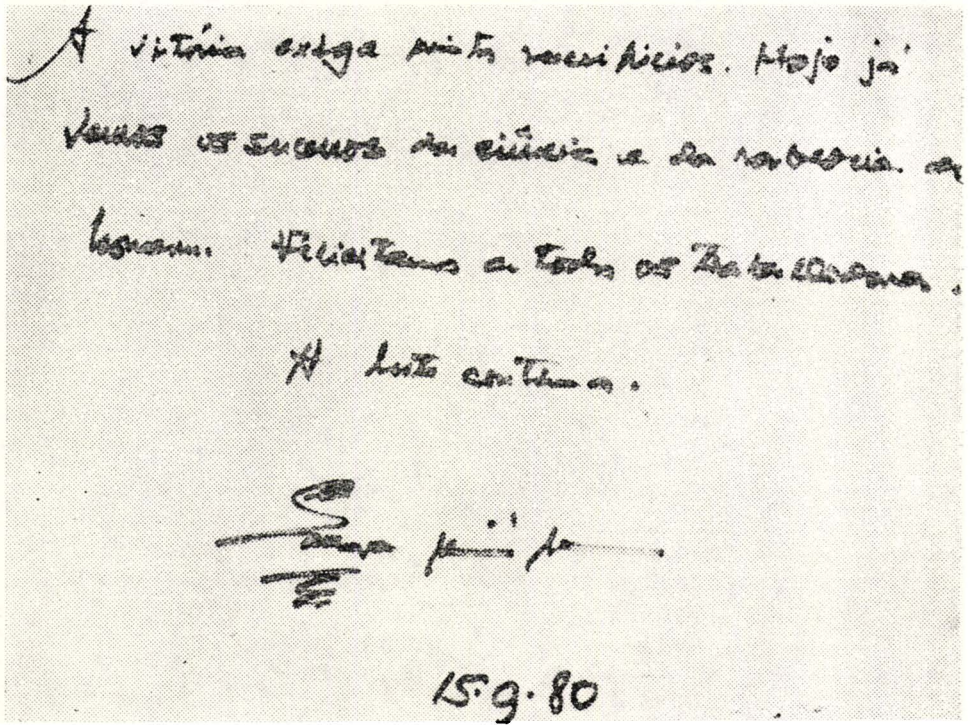 A vitória exige muitos sacrifícios. Hoje já
vemos os sucessos da ciência e da sabedoria do
homem. Felicitamos a todos os Trabalhadores.
A luta continua.
15.9.80